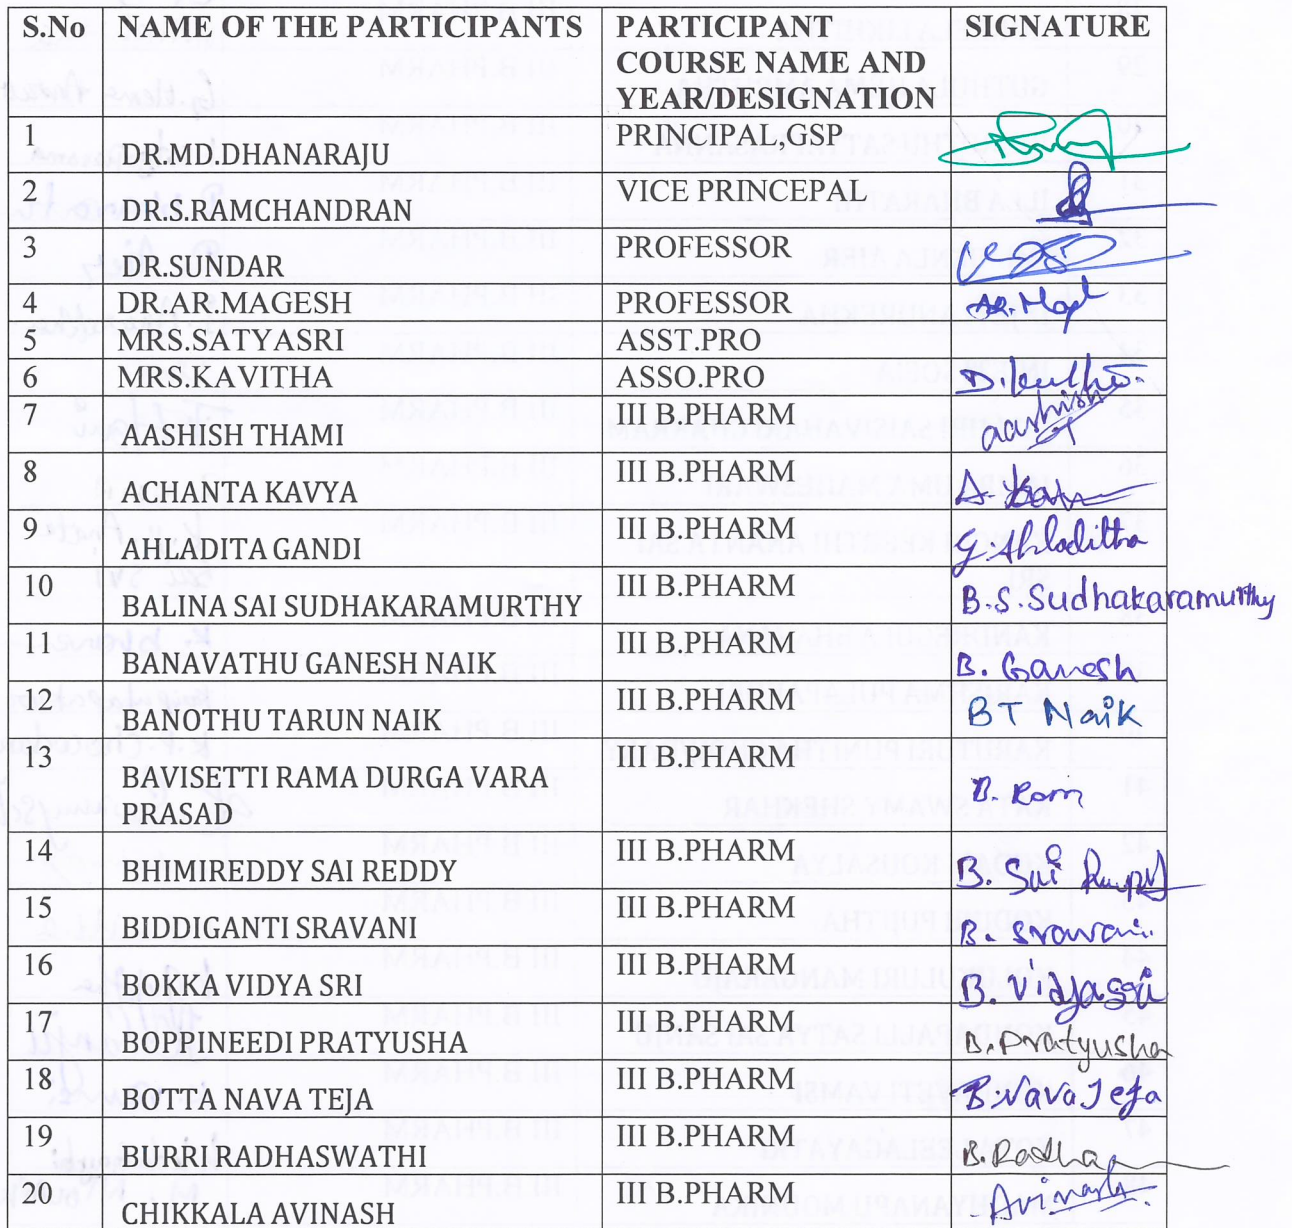 S.No NAME OF THE PARTICIPANTS PARTICIPANT COURSE NAME AND YEAR/DESIGNATION SIGNATURE
1 DR.MD.DHANARAJU PRINCIPAL,GSP
2 DR.S.RAMCHANDRAN VICE PRINCEPAL
3 DR.SUNDAR PROFESSOR
4 DR.AR.MAGESH PROFESSOR AR.Magh
5 MRS.SATYASRI ASST.PRO
6 MRS.KAVITHA ASSO.PRO
7 AASHISH THAMI III B.PHARM aashish
8 ACHANTA KAVYA III B.PHARM
9 AHLADITA GANDI III B.PHARM G.Ahladitha
10 BALINA SAI SUDHAKARAMURTHY III B.PHARM B.S.Sudhakaramurthy
11 BANAVATHU GANESH NAIK III B.PHARM B. Ganesh
12 BANOTHU TARUN NAIK III B.PHARM BT Naik
13 BAVISETTI RAMA DURGA VARA PRASAD III B.PHARM B. Ram
14 BHIMIREDDY SAI REDDY III B.PHARM B. Sai
15 BIDDIGANTI SRAVANI III B.PHARM B. Sravani
16 BOKKA VIDYA SRI III B.PHARM B. Vidyasri
17 BOPPINEEDI PRATYUSHA III B.PHARM B.Pratyusha
18 BOTTA NAVA TEJA III B.PHARM B.Nava Teja
19 BURRI RADHASWATHI III B.PHARM B.Radha
20 CHIKKALA AVINASH III B.PHARM Avinash